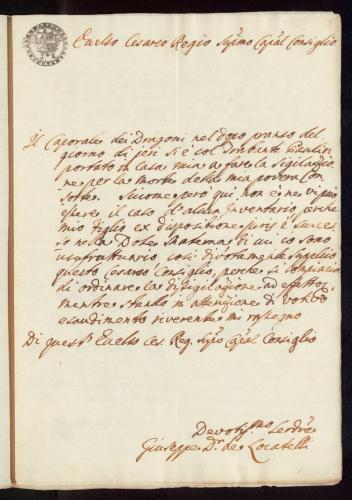 Eccelso Cesareo Regio Supmo Capal Consiglio
Il Caporale dei Dragoni nel dopo pranso del
giorno di jeri si è col Drabante Paulin
portato in Casa mia a fare la Sigilazio
ne per la Morte della mia povera Con
sorte. Siccome però qui non è ne vi può
essere il caso d'alcun Inventario perche
mio figlio ex dispositione juris è succes
so nella Dote Materna di cui io sono
usufruttuario così divotamente supplico
questo Cesareo Consiglio, perche si compiacia
di ordinare la disigilazione ad effetto,
mentre stando in attenzione di
esaudimento riverente mi rassegno
Di quest' Eccelso Ces. Reg. Supmo Capal Consiglio
Devotissmo Serdre
Giuseppe Dr. de Locatelli